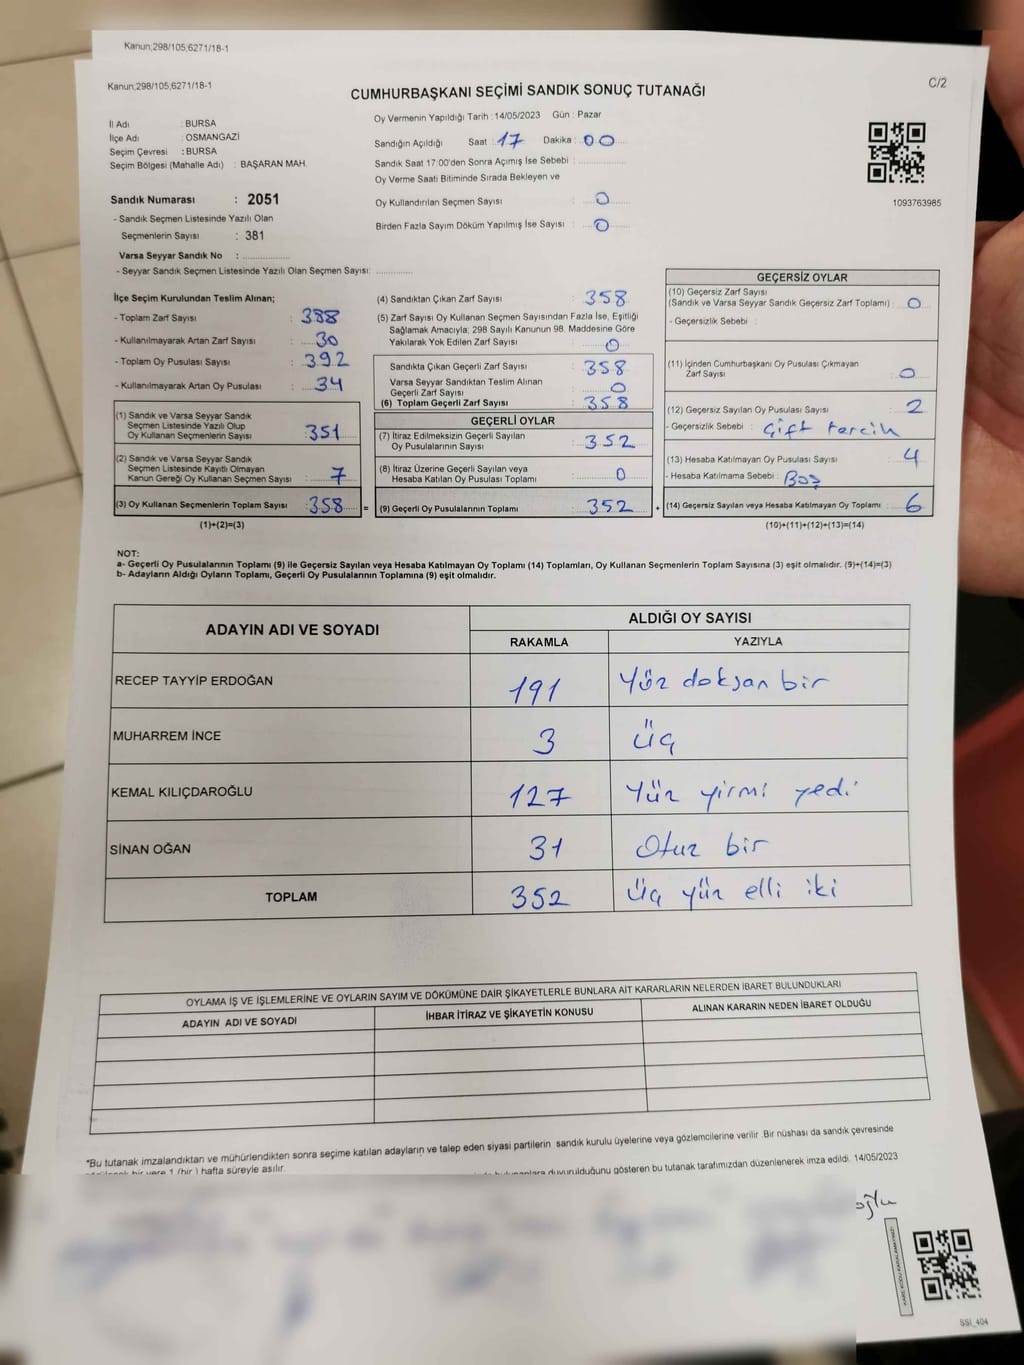 Kanun;298/105;6271/18-1
Kanun;298/105;6271/18-1
C/2
CUMHURBAŞKANI SEÇİMİ SANDIK SONUÇ TUTANAĞI
İl Adı : BURSA
İlçe Adı : OSMANGAZİ
Seçim Çevresi : BURSA
Seçim Bölgesi (Mahalle Adı) : BAŞARAN MAH.
Sandık Numarası : 2051
- Sandık Seçmen Listesinde Yazılı Olan
Seçmenlerin Sayısı : 381
Varsa Seyyar Sandık No : ................
- Seyyar Sandık Seçmen Listesinde Yazılı Olan Seçmen Sayısı: ............
Oy Vermenin Yapıldığı Tarih : 14/05/2023 Gün : Pazar
Sandığın Açıldığı Saat : 17 Dakika : 00
Sandık Saat 17:00'den Sonra Açımış İse Sebebi : ................
Oy Verme Saati Bitiminde Sırada Bekleyen ve
Oy Kullandırılan Seçmen Sayısı : 0
Birden Fazla Sayım Döküm Yapılmış İse Sayısı : 0
1093763985
İlçe Seçim Kurulundan Teslim Alınan;
- Toplam Zarf Sayısı : 388
- Kullanılmayarak Artan Zarf Sayısı : 30
- Toplam Oy Pusulası Sayısı : 392
- Kullanılmayarak Artan Oy Pusulası : 34
(1) Sandık ve Varsa Seyyar Sandık
Seçmen Listesinde Yazılı Olup
Oy Kullanan Seçmenlerin Sayısı : 351
(2) Sandık ve Varsa Seyyar Sandık
Seçmen Listesinde Kayıtlı Olmayan
Kanun Gereği Oy Kullanan Seçmen Sayısı : 7
(3) Oy Kullanan Seçmenlerin Toplam Sayısı : 358 =
(1)+(2)=(3)
(4) Sandıktan Çıkan Zarf Sayısı : 358
(5) Zarf Sayısı Oy Kullanan Seçmen Sayısından Fazla İse, Eşitliği
Sağlamak Amacıyla; 298 Sayılı Kanunun 98. Maddesine Göre
Yakılarak Yok Edilen Zarf Sayısı : 0
Sandıkta Çıkan Geçerli Zarf Sayısı : 358
Varsa Seyyar Sandıktan Teslim Alınan
Geçerli Zarf Sayısı : 0
(6) Toplam Geçerli Zarf Sayısı : 358
GEÇERLİ OYLAR
(7) İtiraz Edilmeksizin Geçerli Sayılan
Oy Pusulalarının Sayısı : 352
(8) İtiraz Üzerine Geçerli Sayılan veya
Hesaba Katılan Oy Pusulası Toplamı : 0
(9) Geçerli Oy Pusulalarının Toplamı : 352 +
GEÇERSİZ OYLAR
(10) Geçersiz Zarf Sayısı
(Sandık ve Varsa Seyyar Sandık Geçersiz Zarf Toplamı) : 0
- Geçersizlik Sebebi :
(11) İçinden Cumhurbaşkanı Oy Pusulası Çıkmayan
Zarf Sayısı : 0
(12) Geçersiz Sayılan Oy Pusulası Sayısı : 2
- Geçersizlik Sebebi : Çift tercih
(13) Hesaba Katılmayan Oy Pusulası Sayısı : 4
- Hesaba Katılmama Sebebi : Boş
(14) Geçersiz Sayılan veya Hesaba Katılmayan Oy Toplamı : 6
(10)+(11)+(12)+(13)=(14)
NOT:
a- Geçerli Oy Pusulalarının Toplamı (9) ile Geçersiz Sayılan veya Hesaba Katılmayan Oy Toplamı (14) Toplamları, Oy Kullanan Seçmenlerin Toplam Sayısına (3) eşit olmalıdır. (9)+(14)=(3)
b- Adayların Aldığı Oyların Toplamı, Geçerli Oy Pusulalarının Toplamına (9) eşit olmalıdır.
ADAYIN ADI VE SOYADI ALDIĞI OY SAYISI
RAKAMLA YAZIYLA
RECEP TAYYİP ERDOĞAN 191 Yüz doksan bir
MUHARREM İNCE 3 üç
KEMAL KILIÇDAROĞLU 127 Yüz yirmi yedi
SİNAN OĞAN 31 Otuz bir
TOPLAM 352 üç yüz elli iki
OYLAMA İŞ VE İŞLEMLERİNE VE OYLARIN SAYIM VE DÖKÜMÜNE DAİR ŞİKAYETLERLE BUNLARA AİT KARARLARIN NELERDEN İBARET BULUNDUKLARI
ADAYIN ADI VE SOYADI İHBAR İTİRAZ VE ŞİKAYETİN KONUSU ALINAN KARARIN NEDEN İBARET OLDUĞU
*Bu tutanak imzalandıktan ve mühürlendikten sonra seçime katılan adayların ve talep eden siyasi partilerin sandık kurulu üyelerine veya gözlemcilerine verilir. Bir nüshası da sandık çevresinde
bir yere 1 (bir) hafta süreyle asılır.
duyurulduğunu gösteren bu tutanak tarafımızdan düzenlenerek imza edildi. 14/05/2023
oğlu
SSI_404